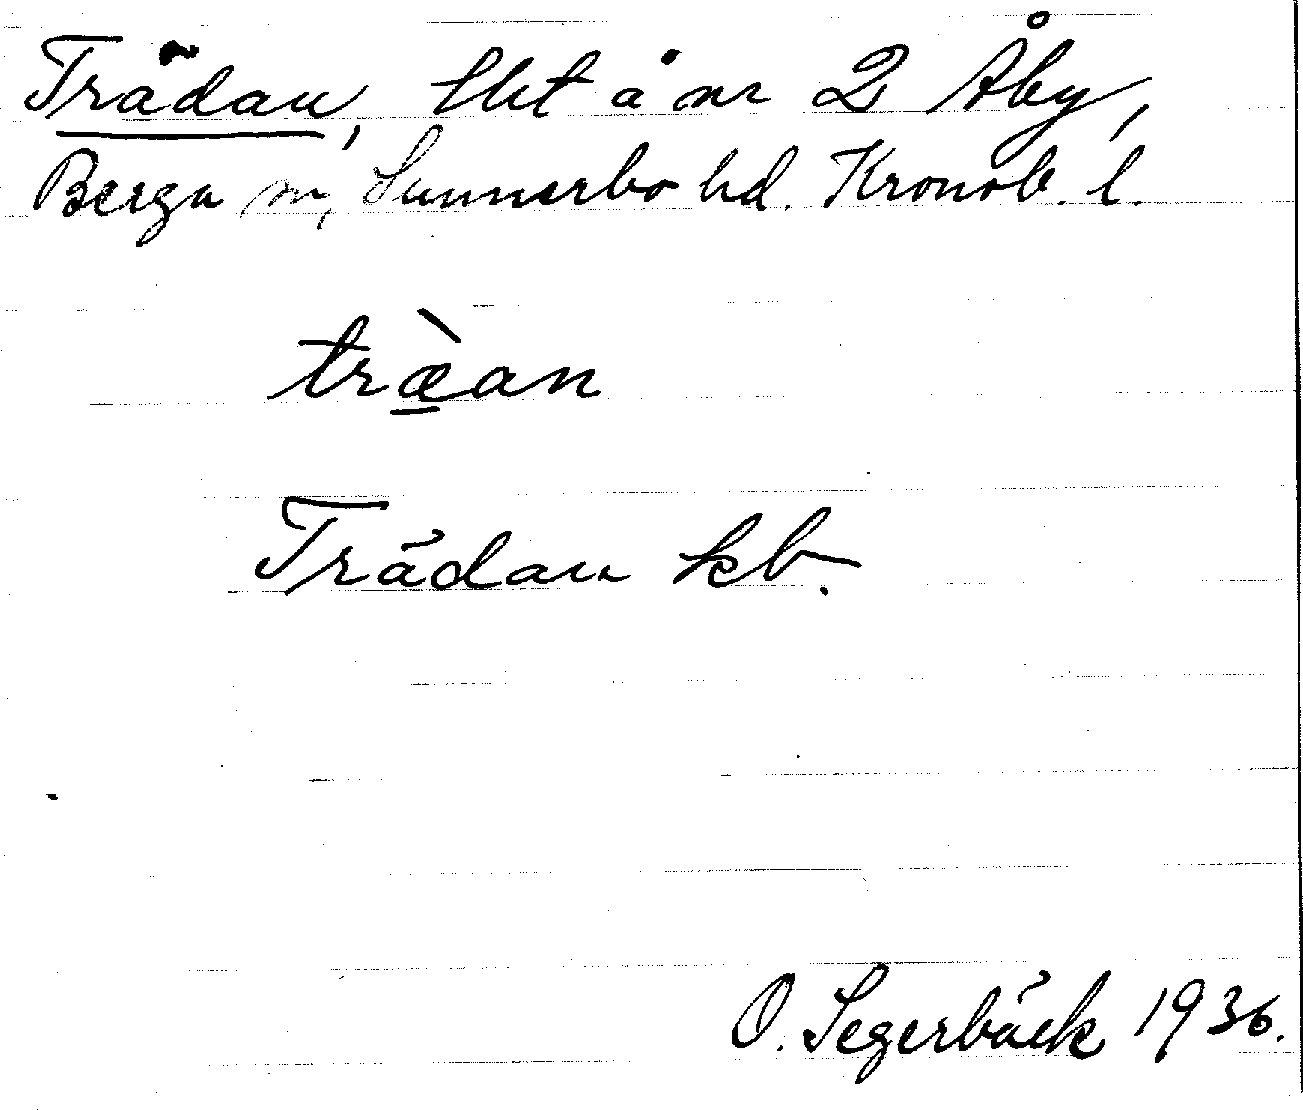 Trädan, lht å nr 2 Åby,
Berga sn, Sunnerbo hd. Kronob. l.
træ̀an
Trädan kb.
O. Segerbäck 1936.